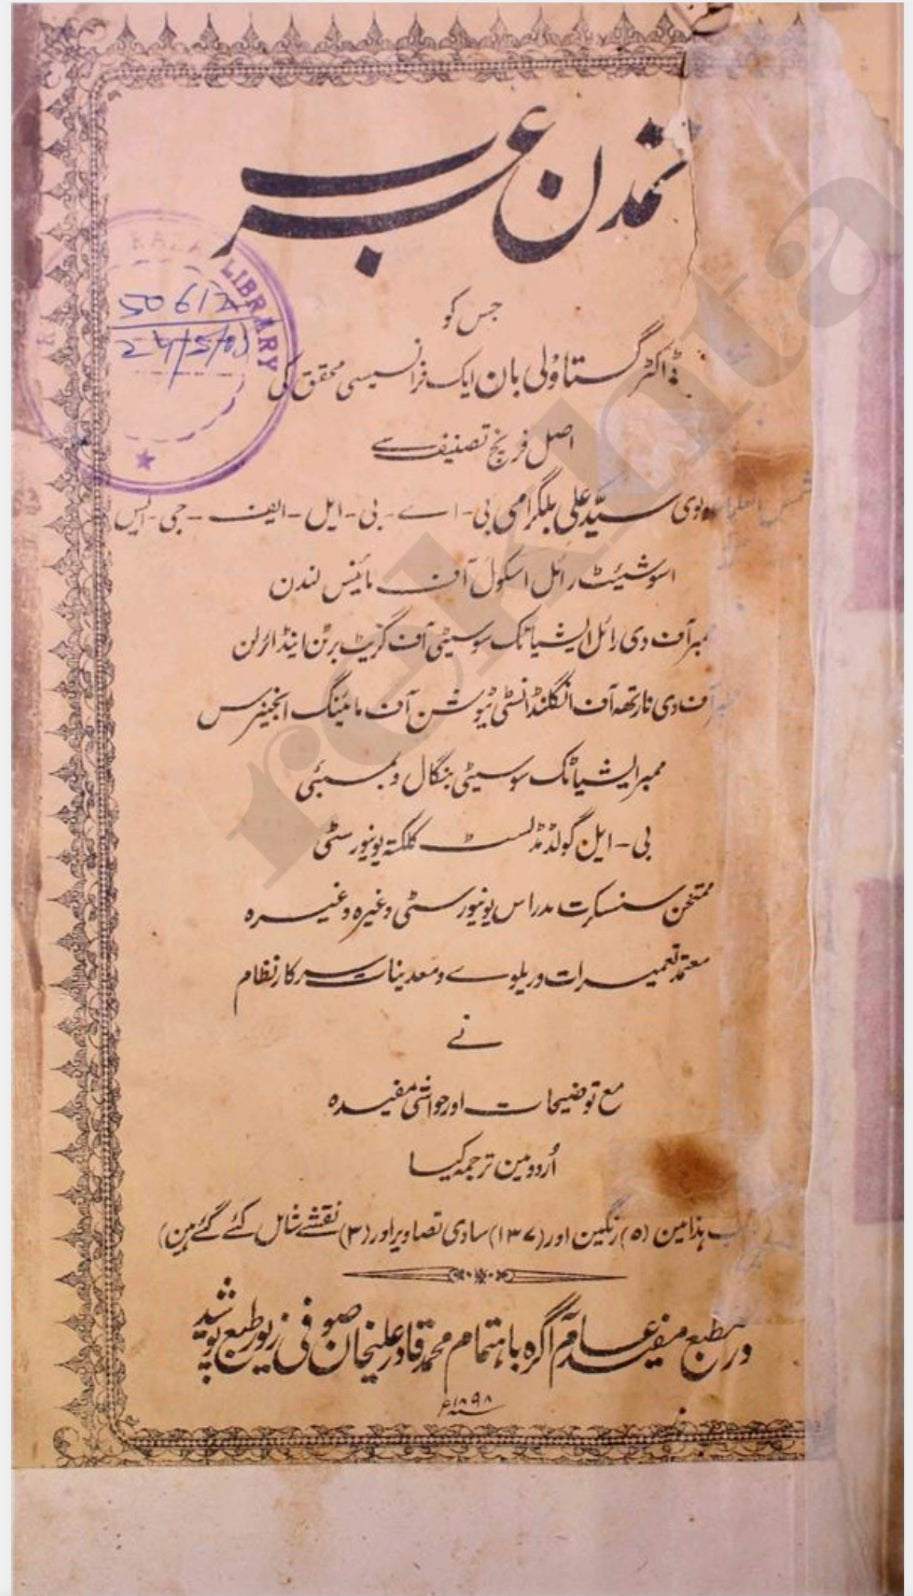 تمدن عرب
جس کو
ڈاکٹر گستاؤلی بان ایک فرانسیسی محقق کی
اصل فرنچ تصنیف سے
شمس العلما مولوی سیّد علی بلگرامی بی-اے-بی-ایل-ایف-جی-ایس
اسوشیئٹ رائل اسکول آف مائینس لندن
ممبر آف دی رائل ایشیاٹک سوسیٹی آف گریٹ برٹن اینڈ ائرلن
ممبر آف دی نارتھ آف انگلنڈ انسٹی ٹیوشن آف مائننگ انجینرس
ممبر ایشیاٹک سوسیٹی بنگال و بمبئی
بی-ایل گولڈ مڈلسٹ کلکتہ یونیورسٹی
ممتحن سنسکرت مدراس یونیورسٹی وغیرہ وغیرہ
معتمد تعمیرات و ریلوے و معدنیات سرکار نظام
نے
مع توضیحات اور حواشی مفیدہ
اُردو مین ترجمہ کیا
ہذا مین (۵) رنگین اور (۱۳۷) سادی تصاویر اور (۳) نقشے شامل کئے گئے ہین)
در مطبع مفید عام آگرہ باہتمام محمد قادر علیخان صوفی زیور طبع پوشید
سنہ ۱۸۹۸ء
LIBRARY
50612
rekhta